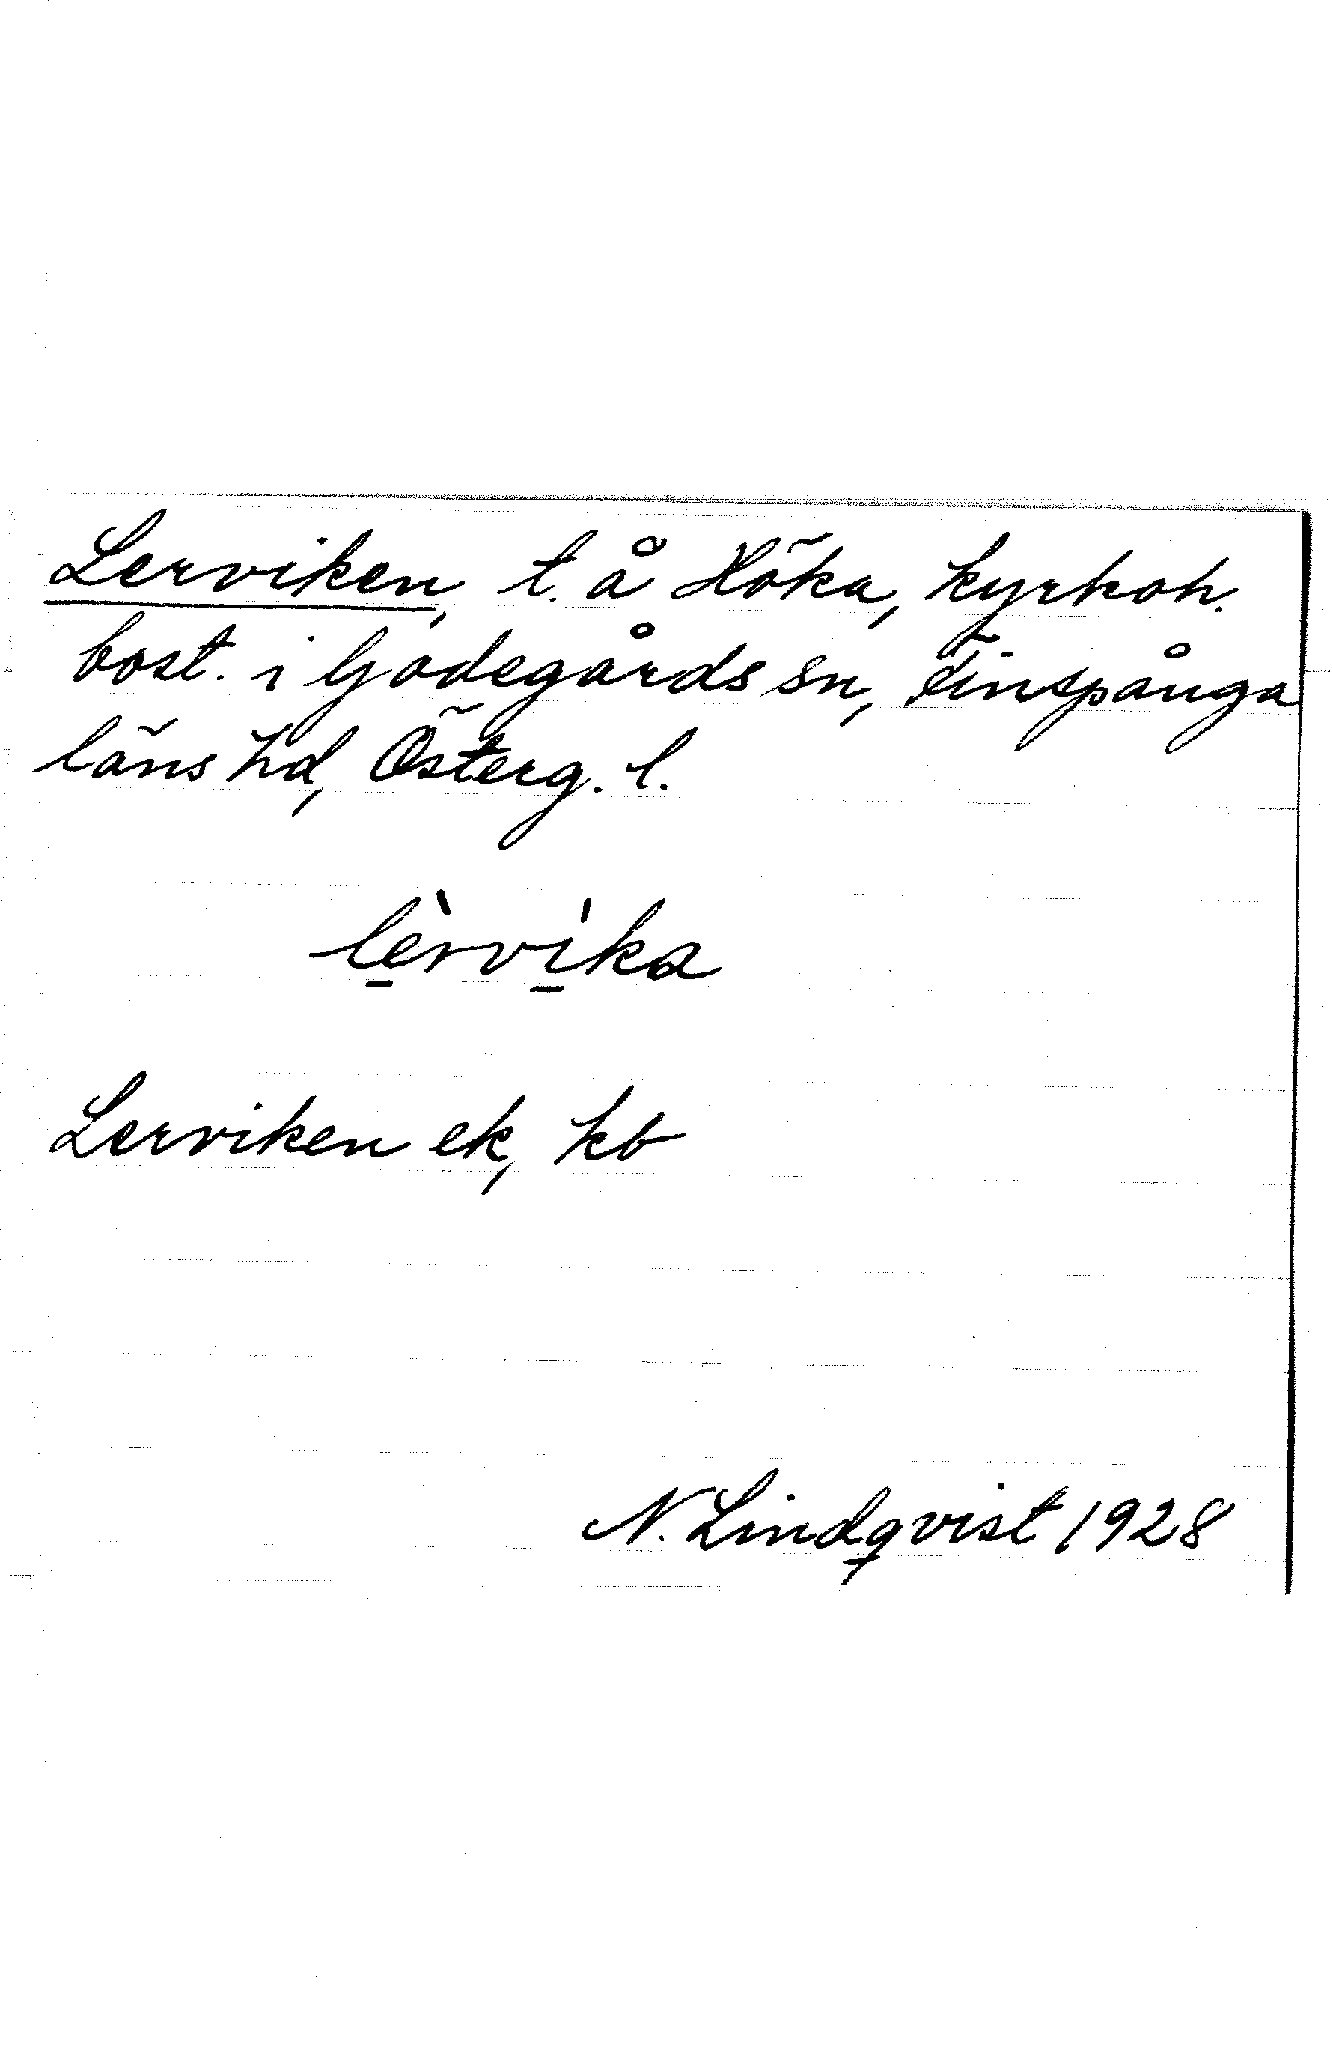 Lerviken, t. å Höka, kyrkoh.
bost. i Godegårds sn, Finspånga
läns hd, Österg. l.
lèrvìka
Lerviken ek, kb
N. Lindqvist 1928